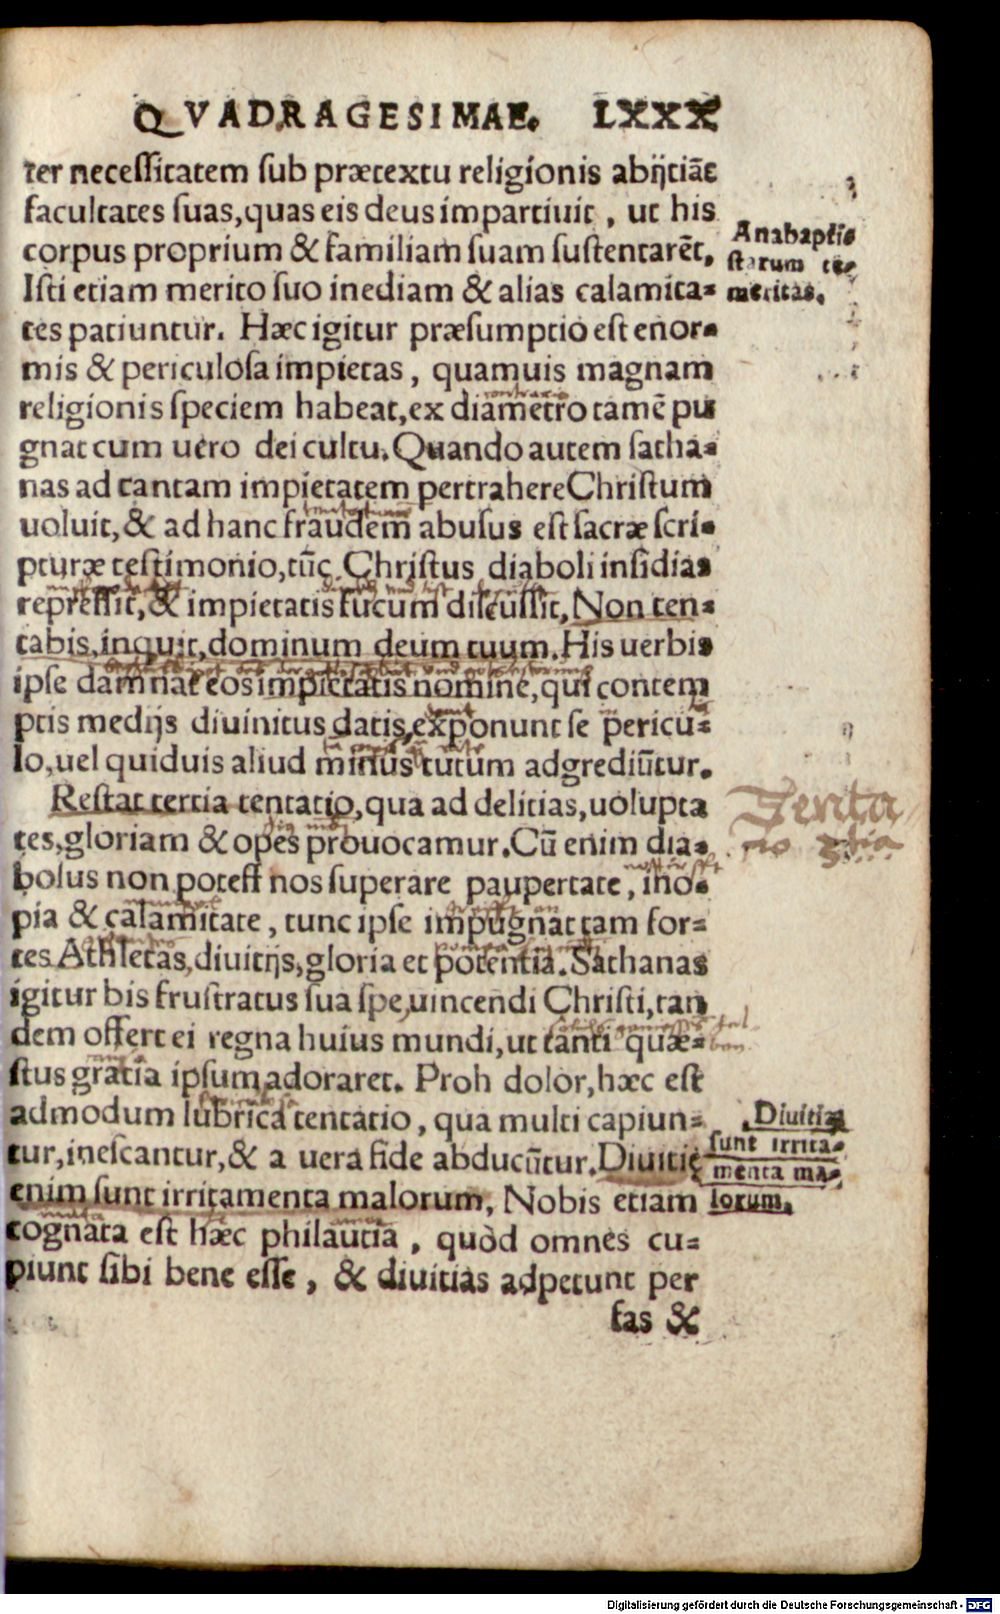 QVADRAGESIMAE. LXXX
ter necessitatem sub prætextu religionis abijtiāt
facultates suas, quas eis deus impartiuit, ut his
corpus proprium & familiam suam sustentarēt.
Isti etiam merito suo inediam & alias calamita⸗
tes patiuntur. Hæc igitur præsumptio est enor⸗
mis & periculosa impietas, quamuis magnam
religionis speciem habeat, ex diametro tamē pu
gnat cum uero dei cultu. Quando autem satha⸗
nas ad tantam impietatem pertrahere Christum
uoluit, & ad hanc fraudem abusus est sacræ scri⸗
pturæ testimonio, tūc Christus diaboli insidias
repressit, & impietatis fucum discussit, Non ten⸗
tabis, inquit, dominum deum tuum. His uerbis
ipse damnat eos impietatis nomine, qui contem
ptis medijs diuinitus datis, exponunt se pericu⸗
lo, uel quiduis aliud minus tutum adgrediūtur.
Restat tertia tentatio, qua ad delitias, uolupta
tes, gloriam & opes prouocamur. Cū enim dia⸗
bolus non potest nos superare paupertate, ino⸗
pia & calamitate, tunc ipse impugnat tam for⸗
tes Athletas, diuitijs, gloria et potentia. Sathanas
igitur bis frustratus sua spe, uincendi Christi, tan
dem offert ei regna huius mundi, ut tanti quæ⸗
stus gratia ipsum adoraret. Proh dolor, hæc est
admodum lubrica tentatio, qua multi capiun⸗
tur, inescantur, & a uera fide abducūtur. Diuitię
enim sunt irritamenta malorum, Nobis etiam
cognata est hæc philautia, quòd omnes cu⸗
piunt sibi bene esse, & diuitias adpetunt per
fas &
Anabapti⸗
starum te⸗
meritas.
Tenta
tio 3tia
Diuitiæ
sunt irrita⸗
menta ma⸗
lorum.
Digitalisierung gefördert durch die Deutsche Forschungsgemeinschaft - DFG